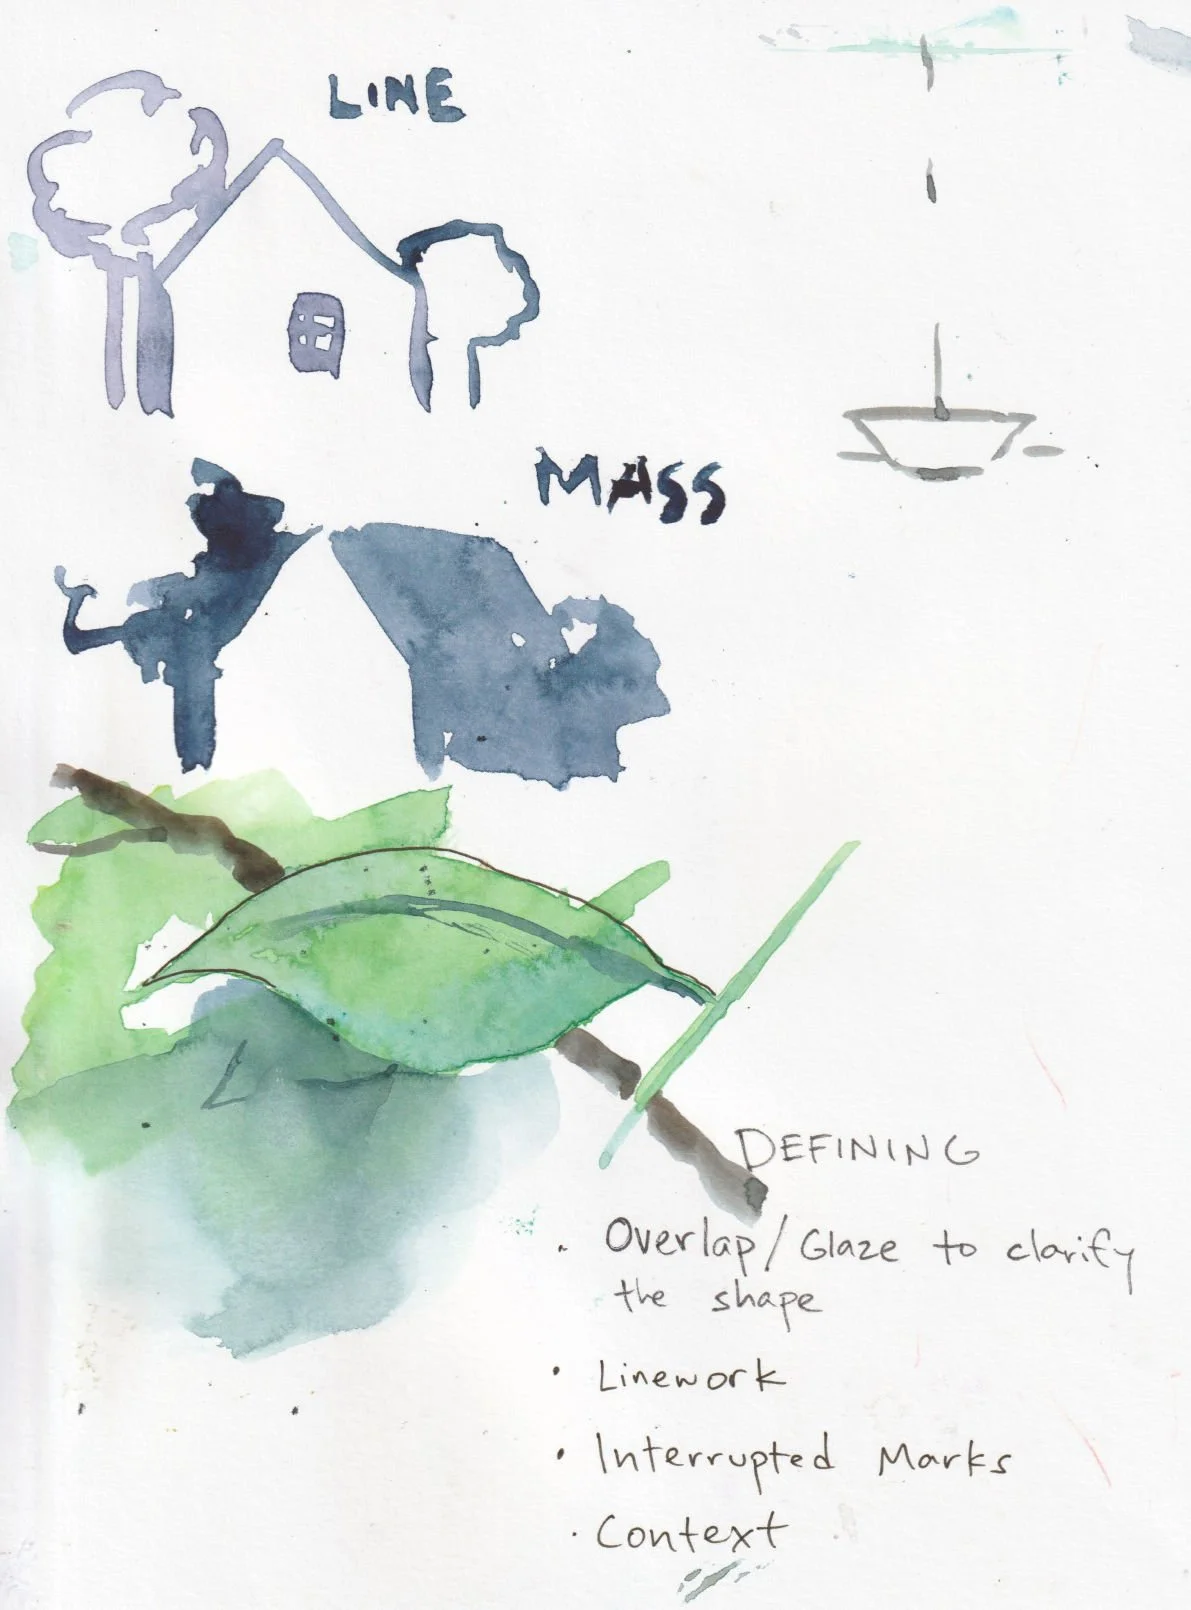 LINE
MASS
DEFINING
. Overlap/Glaze to clarify
the shape
• Linework
• Interrupted Marks
· Context